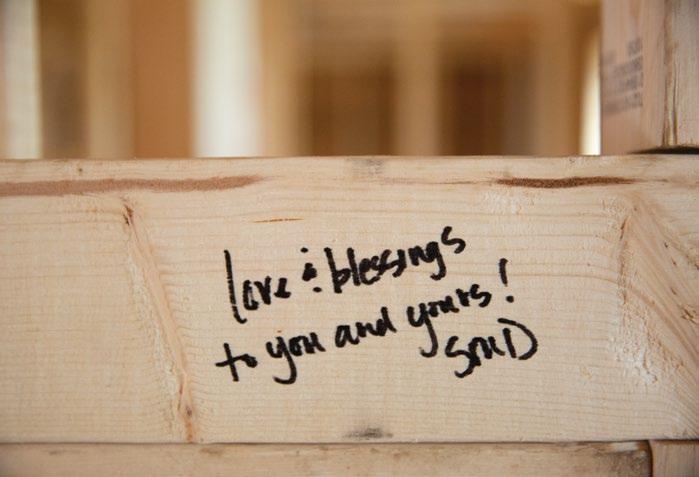 love & blessings
to you and yours!
SMD